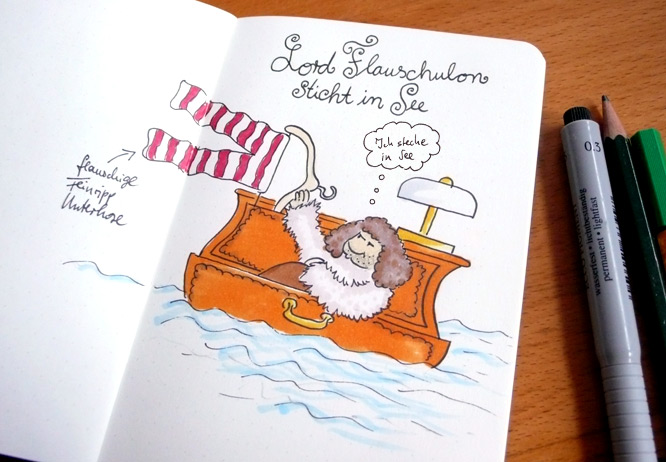 Lord Flauschulon
sticht in See
Ich steche
in See
flauschige
Feinripp
Unterhose
0.3
wasserfest • lichtbeständig
permanent • lightfast